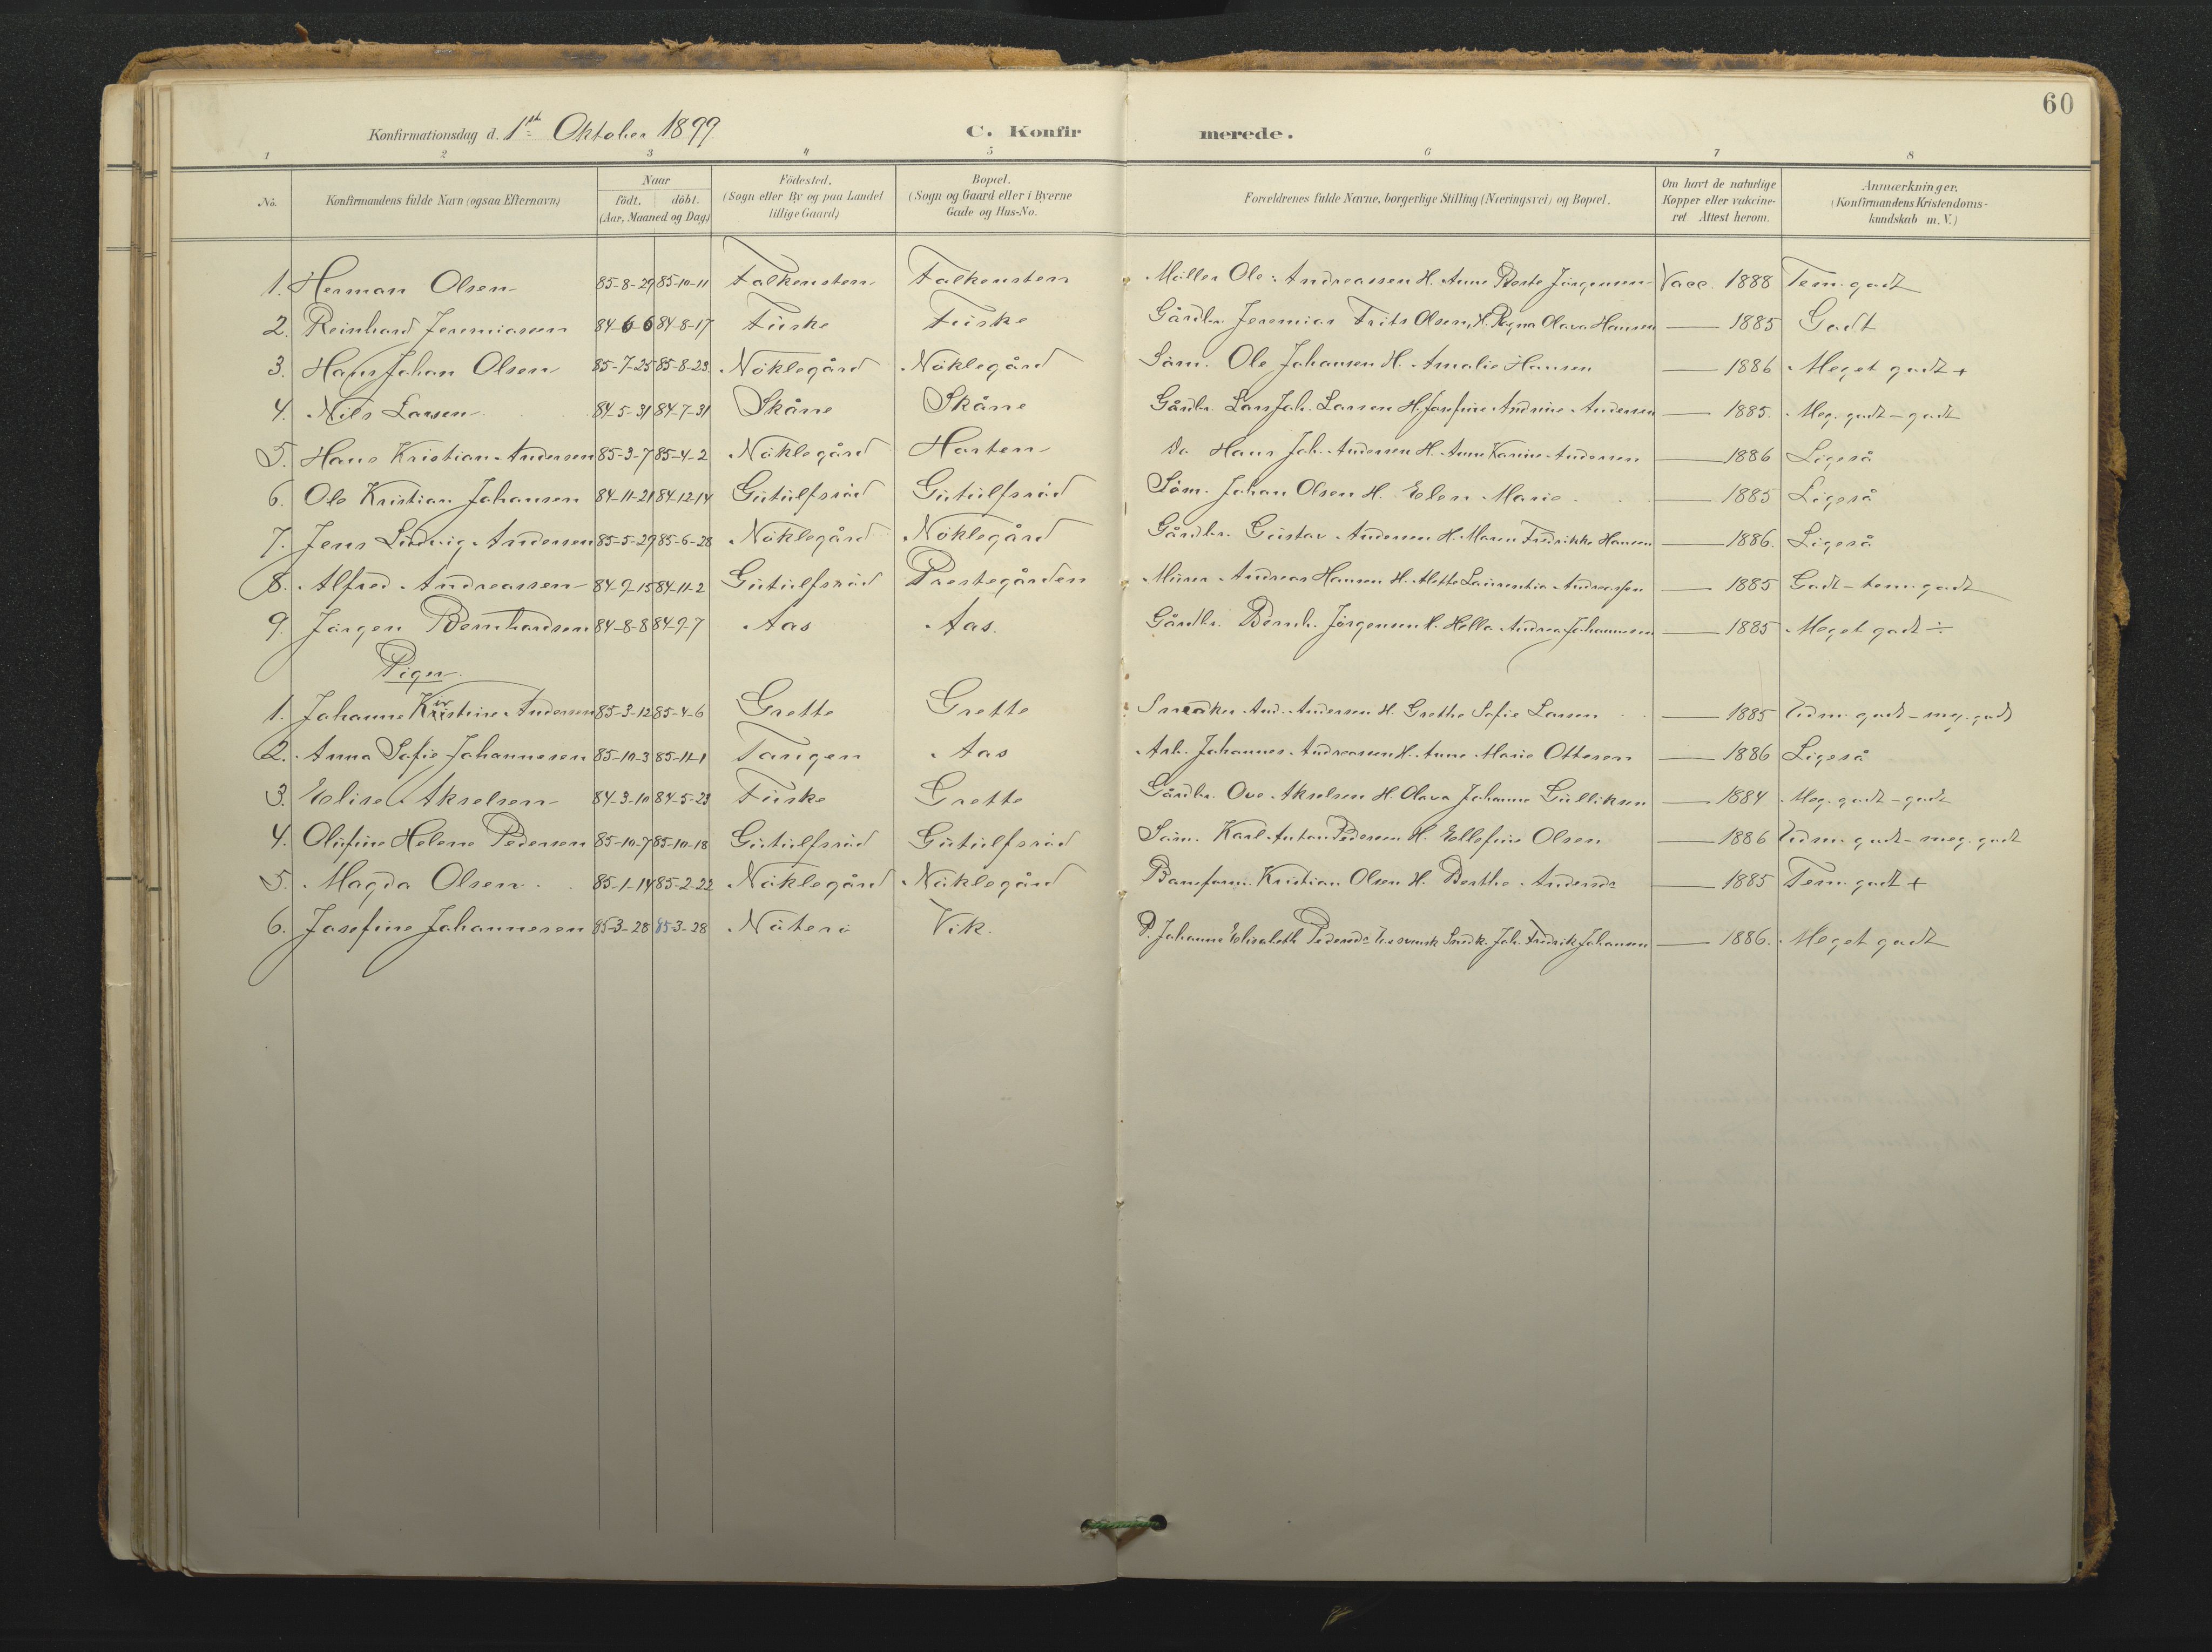 60
Konfirmationsdag d. 1st Oktober 1899.
C. Konfirmerede.
1 2 3 4 5 6 7 8
No.
Konfirmandens fulde Navn (ogsaa Efternavn)
Naar födt. döbt. (Aar, Maaned og Dag.)
Födested. (Sogn eller By og paa Landet tillige Gaard)
Bopæl. (Sogn og Gaard eller i Byerne Gade og Hus-No.
Forældrenes fulde Navne, borgerlige Stilling (Næringsvei) og Bopæl.
Om havt de naturlige Kopper eller vakcineret Attest herom.
Anmærkninger. (Konfirmandens Kristendomskundskab m.V.)
1. Herman Olsen 85-8-29 85-10-11 Falkensten Falkensten Möller Ole Andreassen H. Anne Berte Jörgensen Vacc. 1888 Tem. godt
2. Reinhard Jeremiasen 84-6-6 84-8-17 Fuske Fuske Gårdbr. Jeremias Frits Olsen, H. Ragna Olava Hansen — 1885 Godt
3. Hans Johan Olsen 85-7-25 85-8-23 Nöklegård Nöklegård Söm. Ole Johansen H. Amalie Hansen — 1886 Meget godt +
4. Nils Larsen 84-5-31 84-7-31 Skåne Skåne Gårdbr. Lars Joh. Larsen H. Josefine Andrine Andersen — 1885. Meg. godt - godt
5. Hans Kristian Andersen 85-3-7 85-4-2 Nöklegård Horten Do Hans Joh. Andersen H. Anne Karine Andersen — 1886 Ligeså
6. Ole Kristian Johansen 84-11-21 84-12-14 Gutulfsröd Gutulfsröd Söm. Johan Olsen H. Elen Marie — 1885 Ligeså
7. Jens Ludvig Andersen 85-5-29 85-6-28 Nöklegård Nöklegård Gårdbr. Gustav Andersen H. Maren Fredrikke Hansen — 1886. Ligeså
8. Alfred Andreassen 84-9-15 84-11-2 Gutulfsröd Prestegården Murer Andreas Hansen H. Alette Laurentia Andreassen — 1885 Godt - tem. godt
9. Jörgen Bernhardsen 84-8-8 84-9-7 Aas Aas. Gårdbr. Bernh. Jörgensen H. Helle Andrea Johannesen — 1885 Meget godt ÷
Piger.
1. Johanne Kristine Andersen 85-3-12 85-4-6 Grette Grette Snedker And. Andersen H. Grethe Sofie Larsen — 1885 Udm. godt - meg. godt
2. Anna Sofie Johannesen 85-10-3 85-11-1 Tangen Aas Arb. Johannes Andreassen H. Anne Marie Ottersen — 1886 Ligeså
3. Elise Akselsen 84-3-10 84-5-23 Fuske Grette Gårdbr. Ove Akselsen H. Olava Johanne Gulliksen — 1884 Meg. godt - godt
4. Olufine Helene Pedersen 85-10-7 85-10-18 Gutulfsröd Gutulfsröd Söm. Karl Anton Pedersen H. Ellefine Olsen — 1886 Udm. godt - meg. godt
5. Magda Olsen 85-1-14 85-2-22 Nöklegård Nöklegård Baneform. Kristian Olsen H. Berthe Andersdr — 1885 Tem. godt +
6. Josefine Johannesen 85-3-28 85-3-28 Nöterö Vik. P. Johanne Elisabeth Pedersdr svensk Snedk. Joh. Fredrik Johansen — 1886. Meget godt